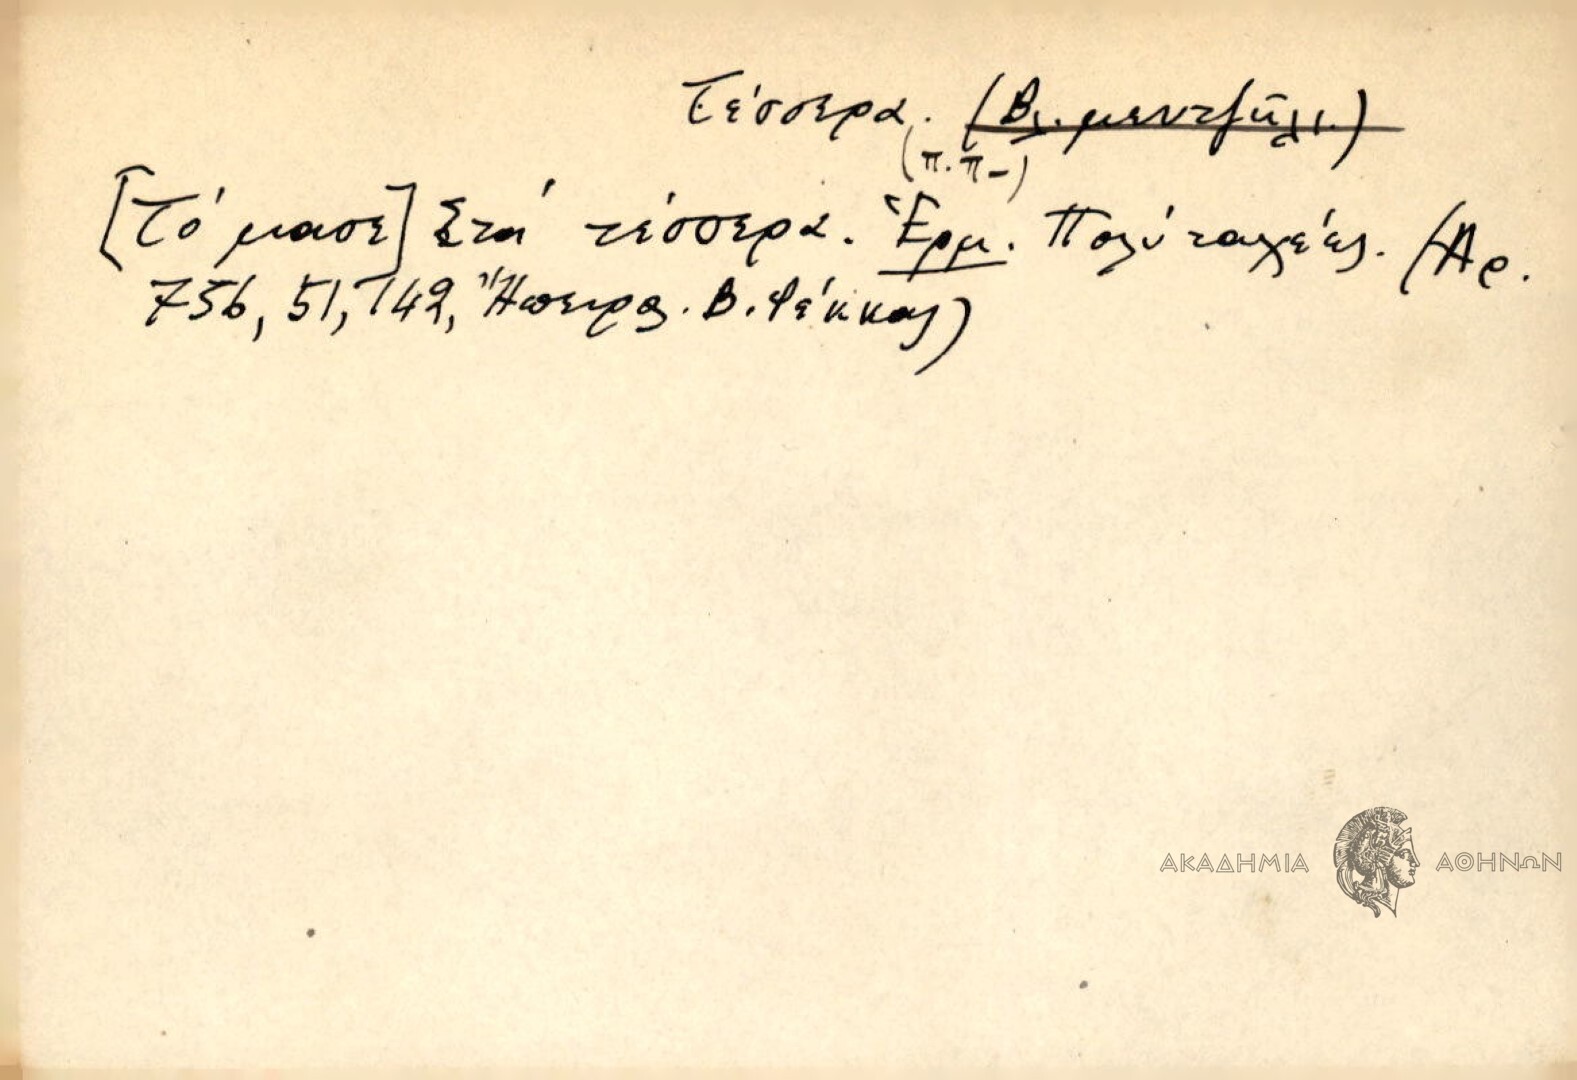 Τέσσερα. (Βλ. μεντζήλι.)
(π.π-)
[Τό μασε] Στά τέσσερα. Ἑρμ. Πολύ ταχέως. (Ἀρ.
756, 51, 142, Ἤπειρος. Β. Φέκκας)
ΑΚΑΔΗΜΙΑ ΑΘΗΝΩΝ